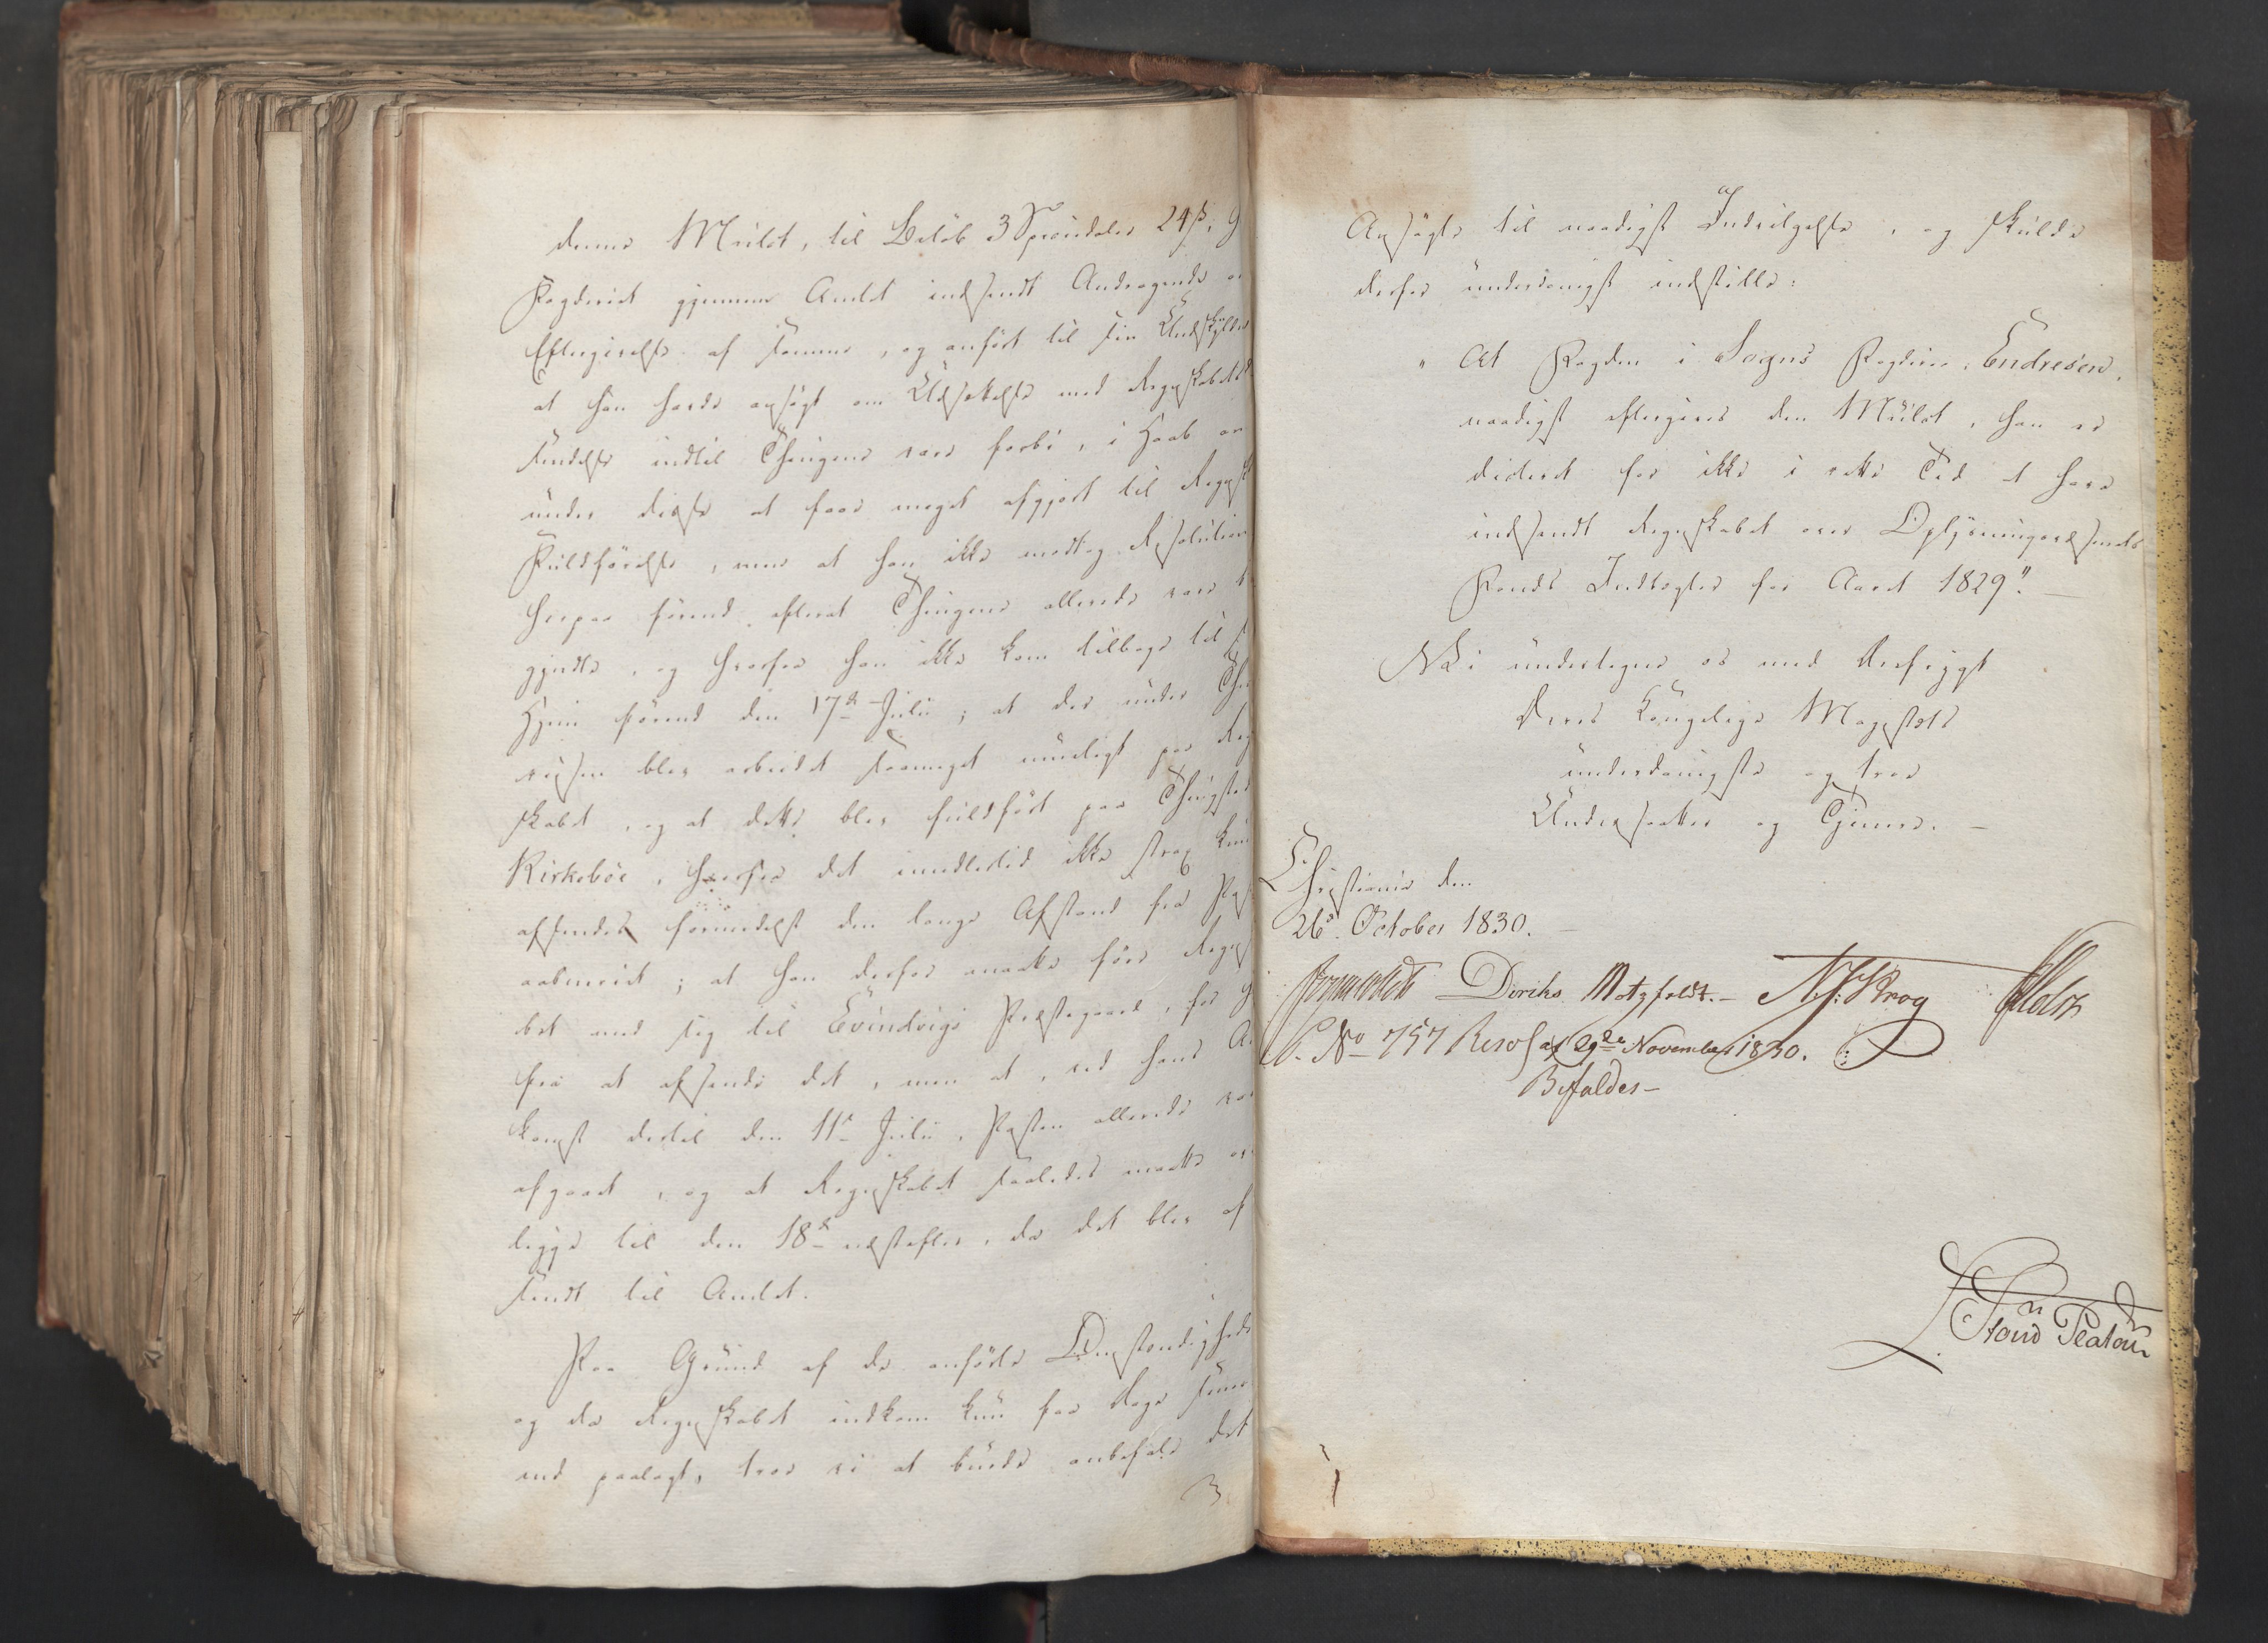 denne Mulct, til Beløb 3 Speciedaler 24 ß,
Fogderiet gjennem Amtet indsendt Andragende
Eftergivelse af samme, og anført til sin Undskyld
at han havde ansøgt om Udsættelse med Regnskabets
Sendelse indtil Thingene vare forbi, i Haab om
under disse at faae meget afgjort til Regnsk
Fuldførelse, men at han ikke modtog Resolution
herpaa førend efterat Thingene allerede vare
gyndte, og hvorfra han ikke kom tilbage til
Hjem førend den 17de Julii; at der under Thi
reisen blev arbeidet saameget mueligt paa Reg
skabet, og at dette blev fuldført paa Thingstedet
Kirkebøe, hvorfra det imidlertid ikke strax kun
afsendes formedelst den lange Afstand fra Post
aabneriet; at han derfor maatte føre Regnsk
bet med sig til Evindvigs Præstegaard, for
fra at afsende det, men at, ved hans An
komst dertil den 11te Julii, Posten allerede var
afgaaet, og at Regnskabet saaledes maatte
ligge til den 18de næstefter, da det blev af
sendt til Amtet.
Paa Grund af de anførte Omstændighede
og da Regnskabet indkom kun faa Dage senere
end paalagt, troe vi at burde anbefale det
Ansøgte til naadigst Indvilgelse, og skulde
derfor underdanigst indstille:
" At Fogden i Sogns Fogderie, Endresen,
naadigst eftergives den Mulct, han er
dicteret for ikke i rette Tid at have
indsendt Regnskabet over Oplysningsvæsenets
Fonds Indtægter for Aaret 1829". —
Vi undertegne os med Ærefrygt
Deres Kongelige Majestæts
underdanigste og troe
Undersaatter og Tjenere. —
Christiania den
26de October 1830. —
Diriks Motzfeldt. — Krog
P. No 757 Resol af 29de November 1830.
Bifaldes —
Platou